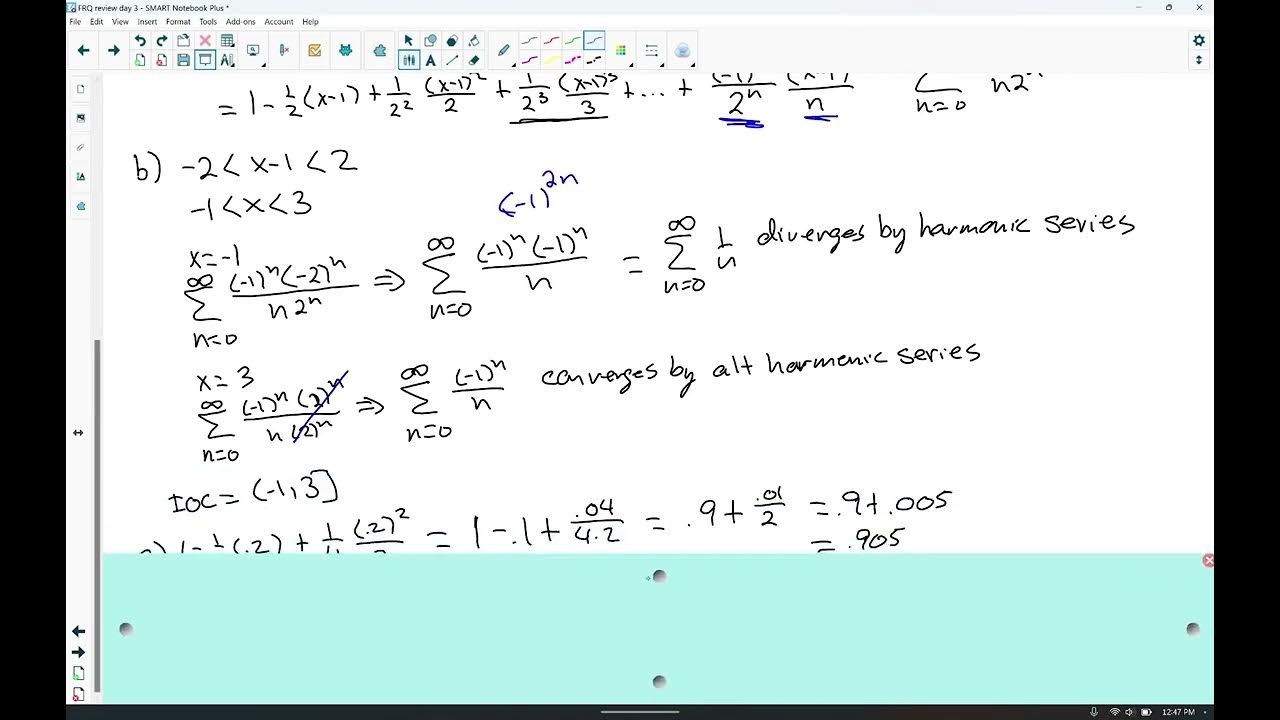 FRQ review day 3 - SMART Notebook Plus *
File Edit View Insert Format Tools Add-ons Account Help
= 1 - 1/2 (x-1) + 1/2² (x-1)²/2 + 1/2³ (x-1)³/3 + ... + 2ⁿ n Σ n=0 n2
b) -2 < x-1 < 2
-1 < x < 3
(-1)²ⁿ
x=-1
∞ Σ n=0 (-1)ⁿ(-2)ⁿ / n 2ⁿ ⇒ ∞ Σ n=0 (-1)ⁿ(-1)ⁿ / n = ∞ Σ n=0 1/n diverges by harmonic series
x= 3
∞ Σ n=0 (-1)ⁿ (2)ⁿ / n (2)ⁿ ⇒ ∞ Σ n=0 (-1)ⁿ / n converges by alt harmonic series
IOC = (-1, 3]
1 - 1 (.2) + 1 (.2)² = 1 - .1 + .04/4.2 = .9 + .01/2 = .9 + .005
= .905
12:47 PM